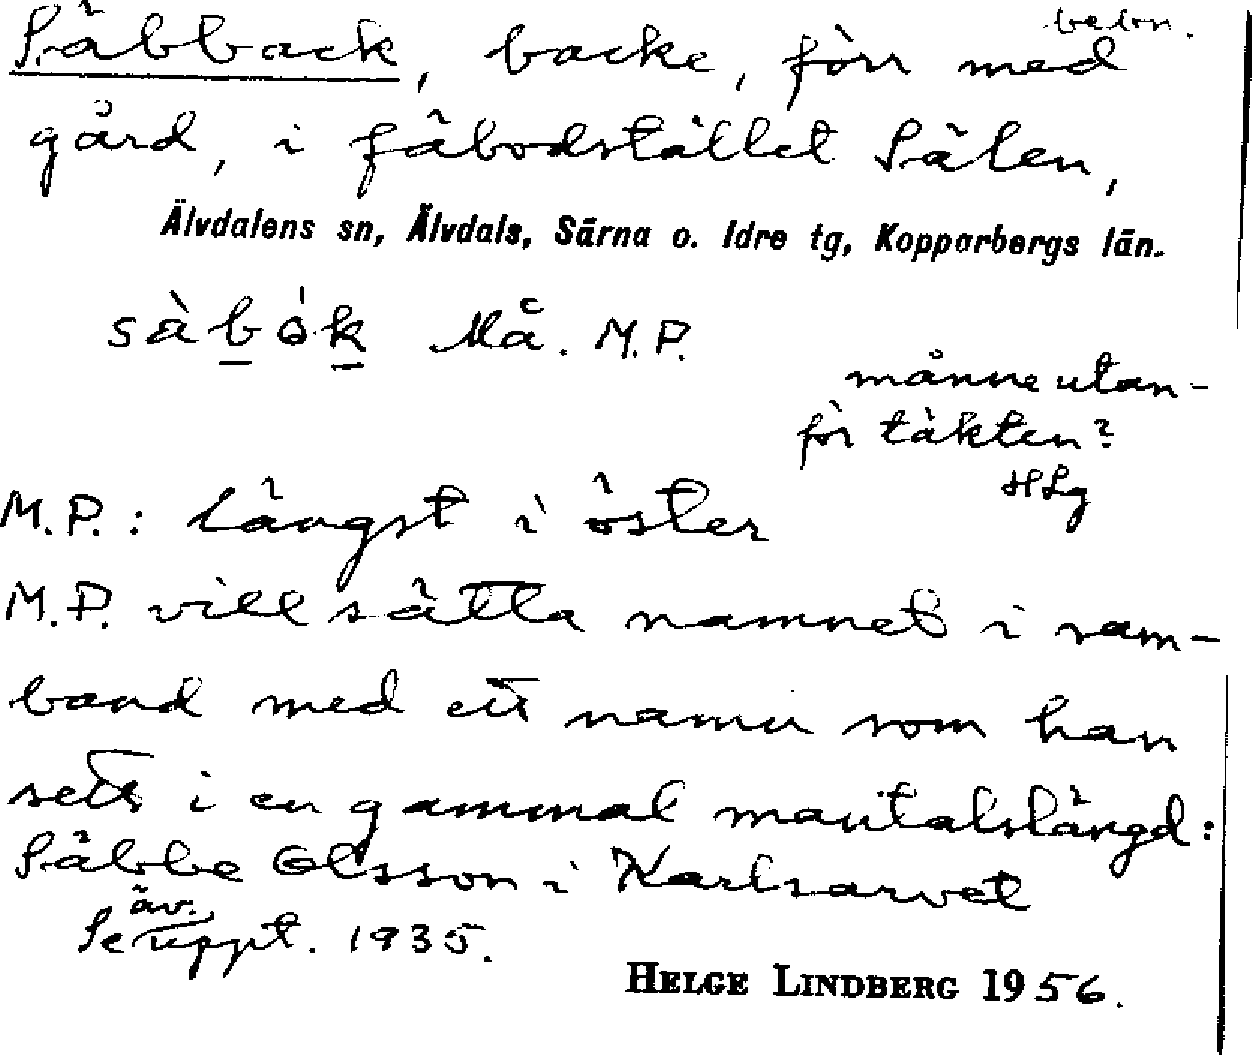 Säbback, backe, förr med bebon.
gård, i fäbodstället Sälen,
Älvdalens sn, Älvdals, Särna o. Idre tg, Kopparbergs län.
sàbók Må. M.P.
månne utan-
för täkten?
HLg
M.P.: Längst i öster
M.P. vill sätta namnet i sam-
band med ett namn som han
sett i en gammal mantalslängd:
Säbbe Olsson i Karlsarvet
Se äv. uppt. 1935.
HELGE LINDBERG 1956.